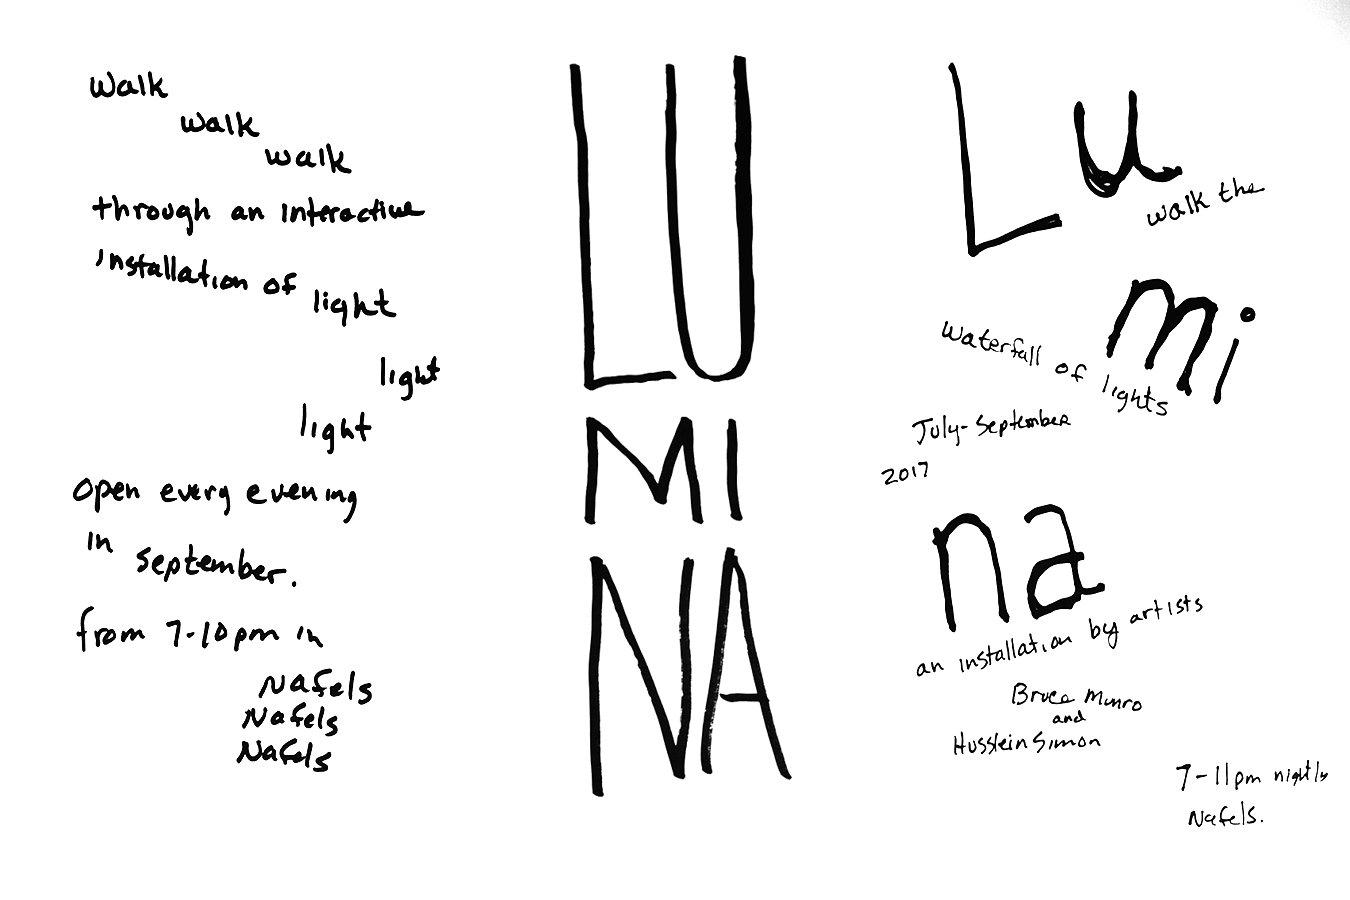 walk
walk
walk
through an interactive
installation of light
light
light
open every evening
in september.
from 7-10pm in
Nafels
Nafels
Nafels
LU
MI
NA
Lu
walk the
mi
waterfall of lights
July-September
2017
na
an installation by artists
Bruce Munro
and
Husslein Simon
7-11pm nightly
Nafels.